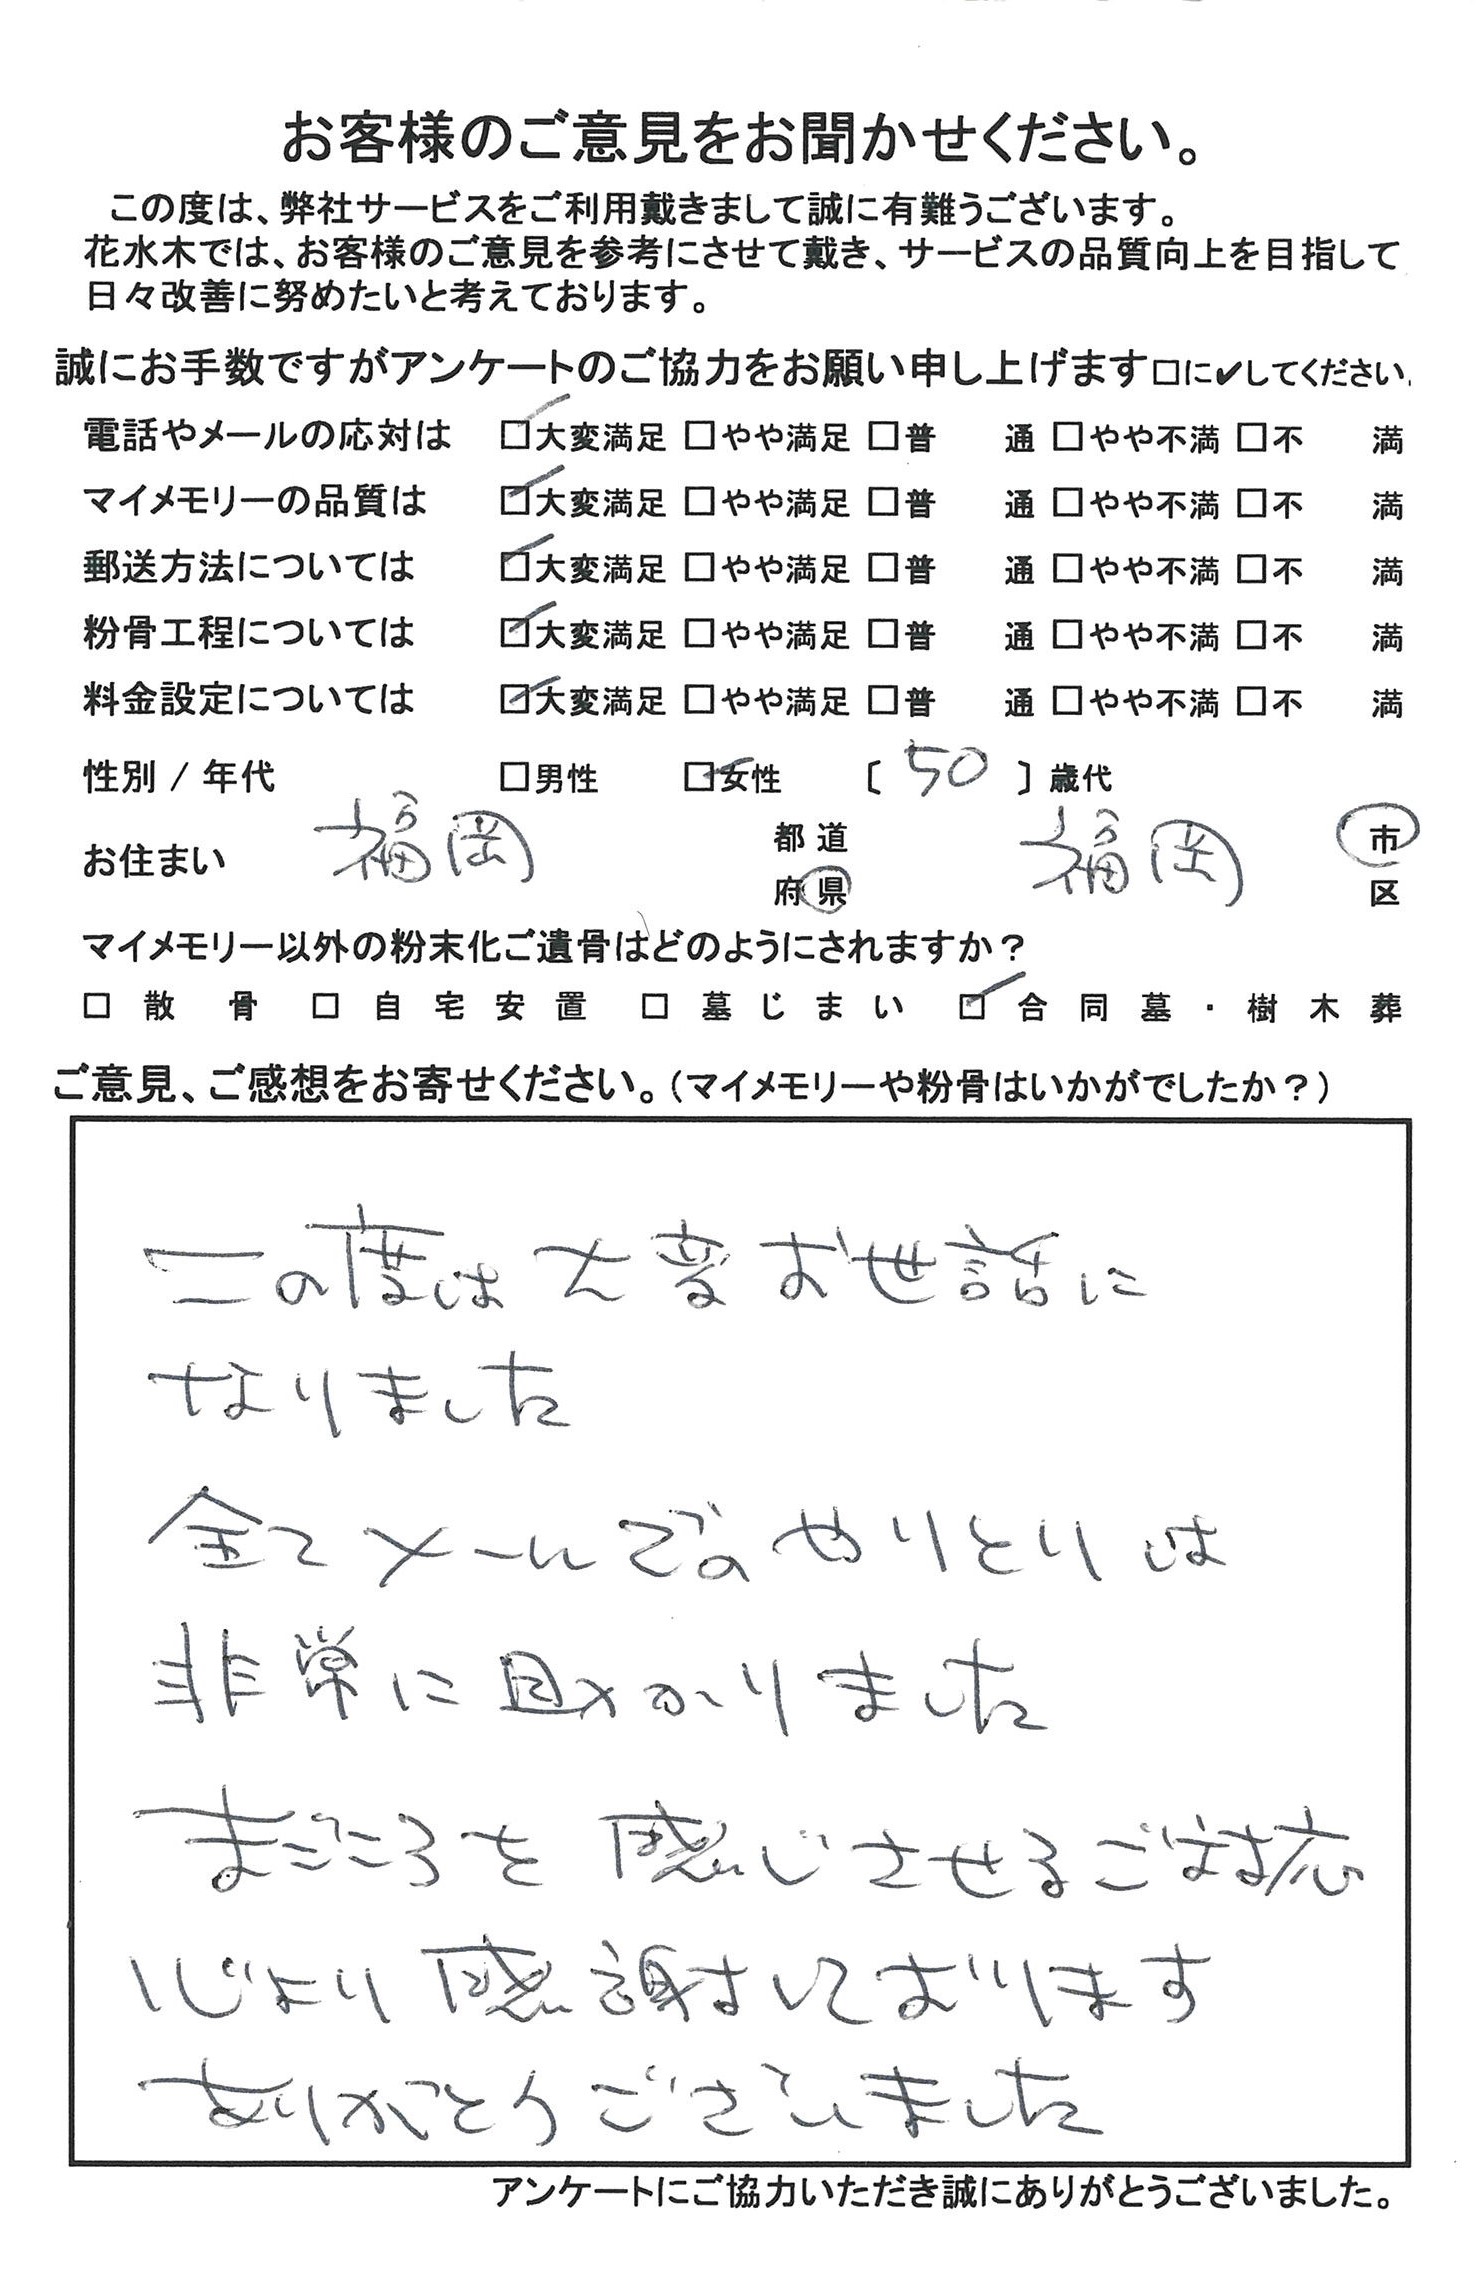 お客様のご意見をお聞かせください。
この度は、弊社サービスをご利用戴きまして誠に有難うございます。
花水木では、お客様のご意見を参考にさせて戴き、サービスの品質向上を目指して
日々改善に努めたいと考えております。
誠にお手数ですがアンケートのご協力をお願い申し上げます□に✔してください。
電話やメールの応対は ☑大変満足 □やや満足 □普 通 □やや不満 □不 満
マイメモリーの品質は ☑大変満足 □やや満足 □普 通 □やや不満 □不 満
郵送方法については ☑大変満足 □やや満足 □普 通 □やや不満 □不 満
粉骨工程については ☑大変満足 □やや満足 □普 通 □やや不満 □不 満
料金設定については ☑大変満足 □やや満足 □普 通 □やや不満 □不 満
性別 / 年代 □男性 ☑女性 〔 50 〕歳代
お住まい 福岡 都道府県 福岡 市区
マイメモリー以外の粉末化ご遺骨はどのようにされますか？
□ 散骨 □ 自宅安置 □ 墓じまい ☑ 合同墓・樹木葬
ご意見、ご感想をお寄せください。（マイメモリーや粉骨はいかがでしたか？）
この度は大変お世話に
なりました
全てメールでのやりとりは
非常に助かりました
まごころを感じさせるご対応
心より感謝しております
ありがとうございました
アンケートにご協力いただき誠にありがとうございました。